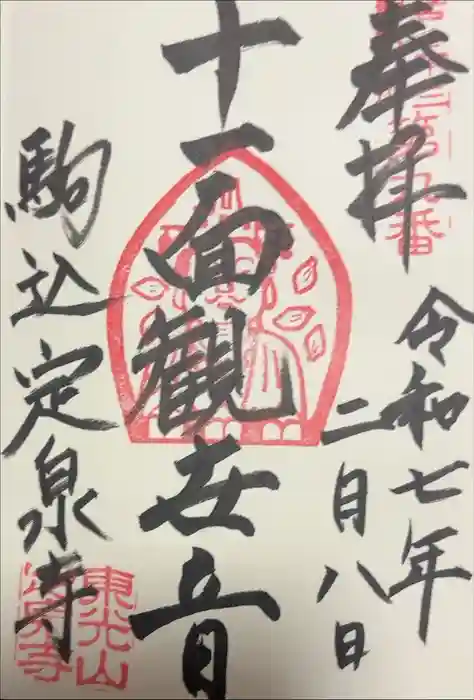 奉拝
令和七年
二月八日
十一面觀世音
駒込定泉寺
東光山
定泉寺